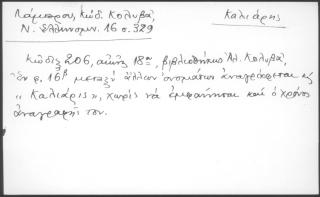 Λάμπρου, Κώδ. Κολυβᾶ, Καλιάρης
Ν. Ἑλληνομν. 16 σ. 329
Κῶδιξ 206, αἰῶν. 18ου, βιβλιοθήκης Ἀλ. Κολυβᾶ,
Ἐν φ. 16β μεταξὺ ἄλλων ὀνομάτων ἀναγράφεται καὶ
"Καλιάρις", χωρὶς νὰ ἐμφαίνηται καὶ ὁ χρόνος
ἀναγραφῆς του.